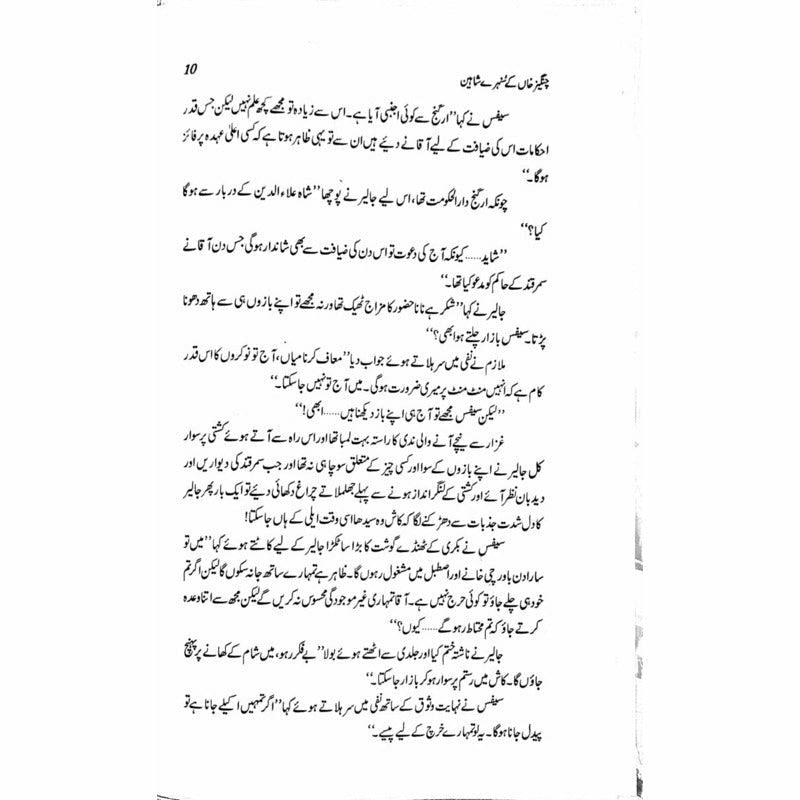 چنگیز خاں کے سُنہرے شاہین
10
سیفس نے کہا ’’ارگنج سے کوئی اجنبی آیا ہے۔ اس سے زیادہ تو مجھے کچھ علم نہیں لیکن جس قدر
احکامات اس کی ضیافت کے لیے آقا نے دیئے ہیں ان سے تو یہی ظاہر ہوتا ہے کہ کسی اعلیٰ عہدہ پر فائز
ہوگا۔‘‘
چونکہ ارگنج دارالحکومت تھا، اس لیے جالیر نے پوچھا ’’شاہ علاءالدین کے دربار سے ہوگا
کیا؟‘‘
’’شاید......کیونکہ آج کی دعوت تو اس دن کی ضیافت سے بھی شاندار ہوگی جس دن آقا نے
سمرقند کے حاکم کو مدعو کیا تھا۔‘‘
جالیر نے کہا ’’شکر ہے نانا حضور کا مزاج ٹھیک تھا ورنہ مجھے تو اپنے بازوں ہی سے ہاتھ دھونا
پڑتا۔ سیفس بازار چلتے ہو ابھی؟‘‘
ملازم نے نفی میں سر ہلاتے ہوئے جواب دیا ’’معاف کرنا میاں، آج تو نوکروں کا اس قدر
کام ہے کہ انہیں منٹ منٹ پر میری ضرورت ہوگی۔ میں آج تو نہیں جا سکتا۔‘‘
’’لیکن سیفس مجھے تو آج ہی اپنے باز دیکھنا ہیں......ابھی!‘‘
غزار سے نیچے آنے والی ندی کا راستہ بہت لمبا تھا اور اس راہ سے آتے ہوئے کشتی پر سوار
کل جالیر نے اپنے بازوں کے سوا اور کسی چیز کے متعلق سوچا ہی نہ تھا اور جب سمرقند کی دیواریں اور
دیدبان نظر آئے اور کشتی کے لنگر انداز ہونے سے پہلے جھلملاتے چراغ دکھائی دیئے تو ایک بار پھر جالیر
کا دل شدت جذبات سے دھڑکنے لگا کہ کاش وہ سیدھا اسی وقت ایلی کے ہاں جا سکتا!
سیفس نے بکری کے ٹھنڈے گوشت کا بڑا سا ٹکڑا جالیر کے لیے کاٹتے ہوئے کہا ’’میں تو
سارا دن باورچی خانے اور اصطبل میں مشغول رہوں گا۔ ظاہر ہے تمہارے ساتھ جا نہ سکوں گا لیکن اگر تم
خود ہی چلے جاؤ تو کوئی حرج نہیں ہے۔ آقا تمہاری غیر موجودگی محسوس نہ کریں گے لیکن مجھ سے اتنا وعدہ
کرتے جاؤ کہ تم محتاط رہو گے......کیوں؟‘‘
جالیر نے ناشتہ ختم کیا اور جلدی سے اٹھتے ہوئے بولا ’’بے فکر رہو، میں شام کے کھانے پر پہنچ
جاؤں گا۔ کاش میں رستم پر سوار ہو کر بازار جا سکتا۔‘‘
سیفس نے نہایت وثوق کے ساتھ نفی میں سر ہلاتے ہوئے کہا ’’اگر تمہیں اکیلے جانا ہے تو
پیدل جانا ہوگا۔ یہ لو تمہارے خرچ کے لیے پیسے۔‘‘